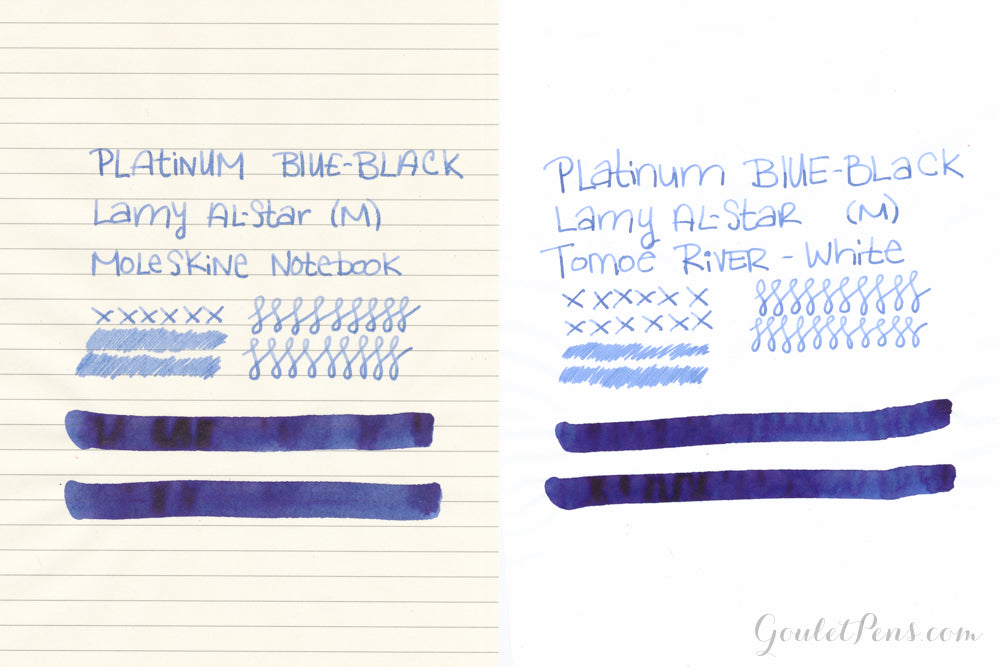 PLAtiNUM BLUE-BLACK
Lamy AL-Star (M)
MOLESKINE NOTEBOOK
xxxxxx
Platinum BLUE-BLaCK
Lamy AL-StaR (M)
Tomoe RiVER - White
xxxxxx
xxxxxx
GouletPens.com